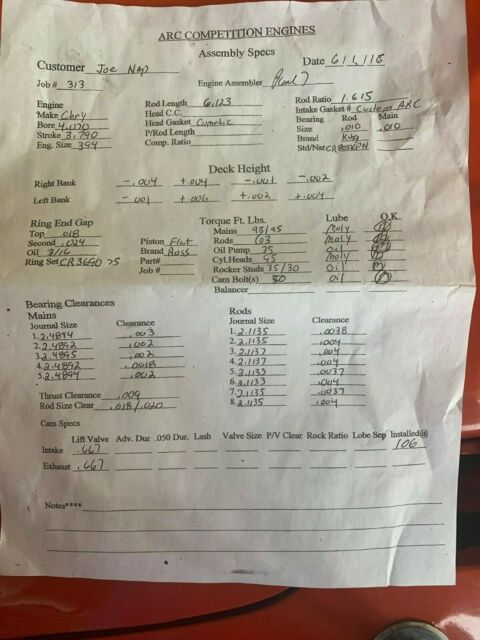 ARC COMPETITION ENGINES
Assembly Specs
Customer Joe Nap Date 6/1/18
Job # 313 Engine Assembler
Engine Rod Length 6.123 Rod Ratio 1.615
Make Chry Head C.C. Intake Gasket # Custom ARC
Bore 4.1770 Head Gasket Cometic Bearing Rod Main
Stroke 3.790 P/Rod Length Size .010 .010
Eng. Size Comp. Ratio Brand King
Std/Nar
Deck Height
Right Bank -.004 +.004 -.001 -.002
Left Bank -.001 +.006 +.002 +.004
Ring End Gap Torque Ft. Lbs. Lube O.K.
Top .018 Mains 95/95 Moly
Second .024 Piston Flat Rods 103 Moly
Oil 3/16 Brand Ross Oil Pump 75 Oil
Ring Set Part# Cyl.Heads 95 Moly
Job # Rocker Studs 35/30 Oil
Cam Bolt(s) 50 Oil
Balancer
Bearing Clearances
Mains Rods
Journal Size Clearance Journal Size Clearance
1. 2.4894 .003 1. 2.1135 .0038
2. 2.4892 .002 2. 2.1135 .004
3. 2.4895 .002 3. 2.1137 .004
4. 2.4892 .0018 4. 2.1137 .004
5. 2.4894 .002 5. 2.1133 .0037
6. 2.1133 .004
Thrust Clearance .009 7. 2.1135 .0037
Rod Size Clear .018/.020 8. 2.1135 .004
Cam Specs
Lift Valve Adv. Dur .050 Dur. Lash Valve Size P/V Clear Rock Ratio Lobe Sep Installed@
Intake .667 106
Exhaust .667
Notes****